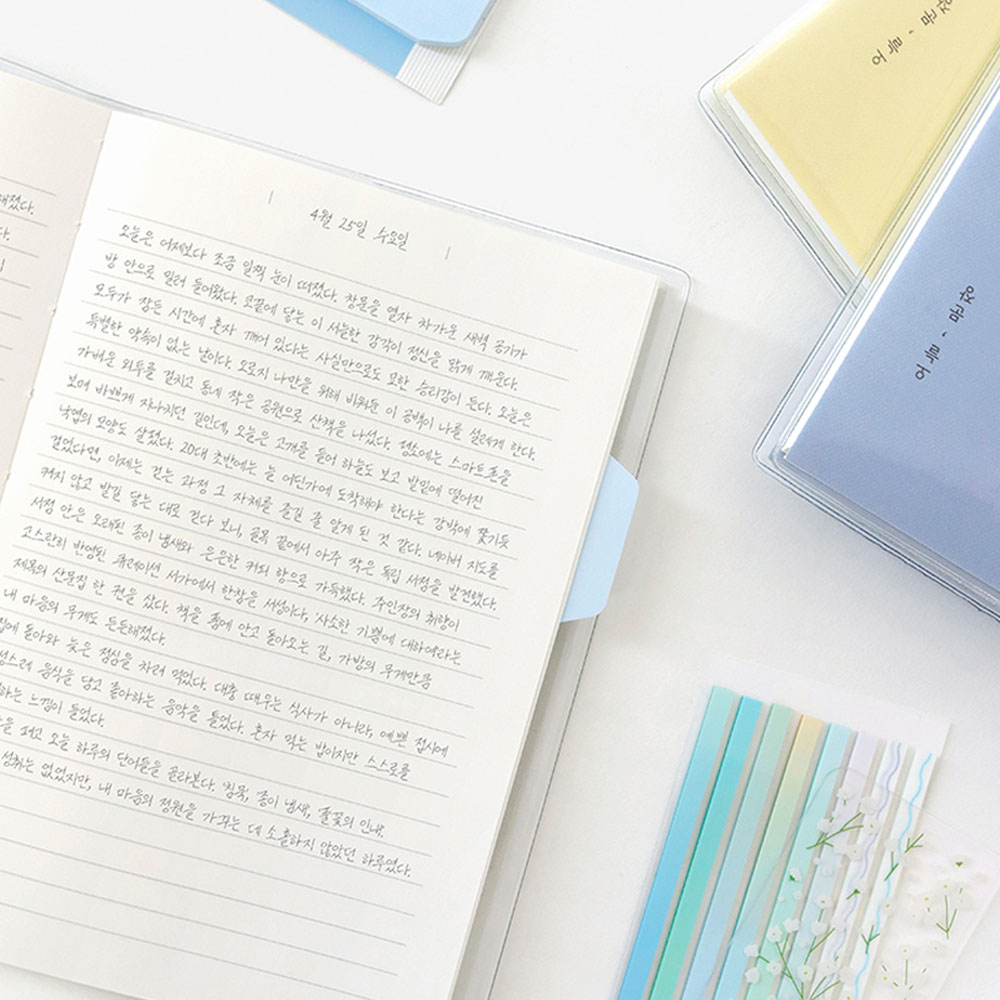 해졌다.
다.
4월 25일 수요일
오늘은 어제보다 조금 일찍 눈이 떠졌다. 창문을 열자 차가운 새벽 공기가
방 안으로 밀려 들어왔다. 코끝에 닿는 이 서늘한 감각이 정신을 맑게 깨운다.
모두가 잠든 시간에 혼자 깨어 있다는 사실만으로도 묘한 승리감이 든다. 오늘은
특별한 약속이 없는 날이다. 오로지 나만을 위해 비워둔 이 공백이 나를 설레게 한다.
가벼운 외투를 걸치고 동네 작은 공원으로 산책을 나섰다. 평소에는 스마트폰을
보며 바쁘게 지나치던 길인데, 오늘은 고개를 들어 하늘도 보고 발밑에 떨어진
낙엽의 모양도 살폈다. 20대 초반에는 늘 어딘가에 도착해야 한다는 강박에 쫓기듯
걸었다면, 이제는 걷는 과정 그 자체를 즐길 줄 알게 된 것 같다. 네이버 지도를
켜지 않고 발길 닿는 대로 걷다 보니, 골목 끝에서 아주 작은 독립 서점을 발견했다.
서점 안은 오래된 종이 냄새와 은은한 커피 향으로 가득했다. 주인장의 취향이
고스란히 반영된 큐레이션 서가에서 한참을 서성이다, '사소한 기쁨에 대하여'라는
제목의 산문집 한 권을 샀다. 책을 품에 안고 돌아오는 길, 가방의 무게만큼
내 마음의 무게도 든든해졌다.
집에 돌아와 늦은 점심을 차려 먹었다. 대충 때우는 식사가 아니라, 예쁜 접시에
성스레 음식을 담고 좋아하는 음악을 틀었다. 혼자 먹는 밥이지만 스스로를
하는 느낌이 들었다.
을 펴고 오늘 하루의 단어들을 골라본다. 침묵, 종이 냄새, 들꽃의 인내.
성취는 없었지만, 내 마음의 정원을 가꾸는 데 소홀하지 않았던 하루였다.